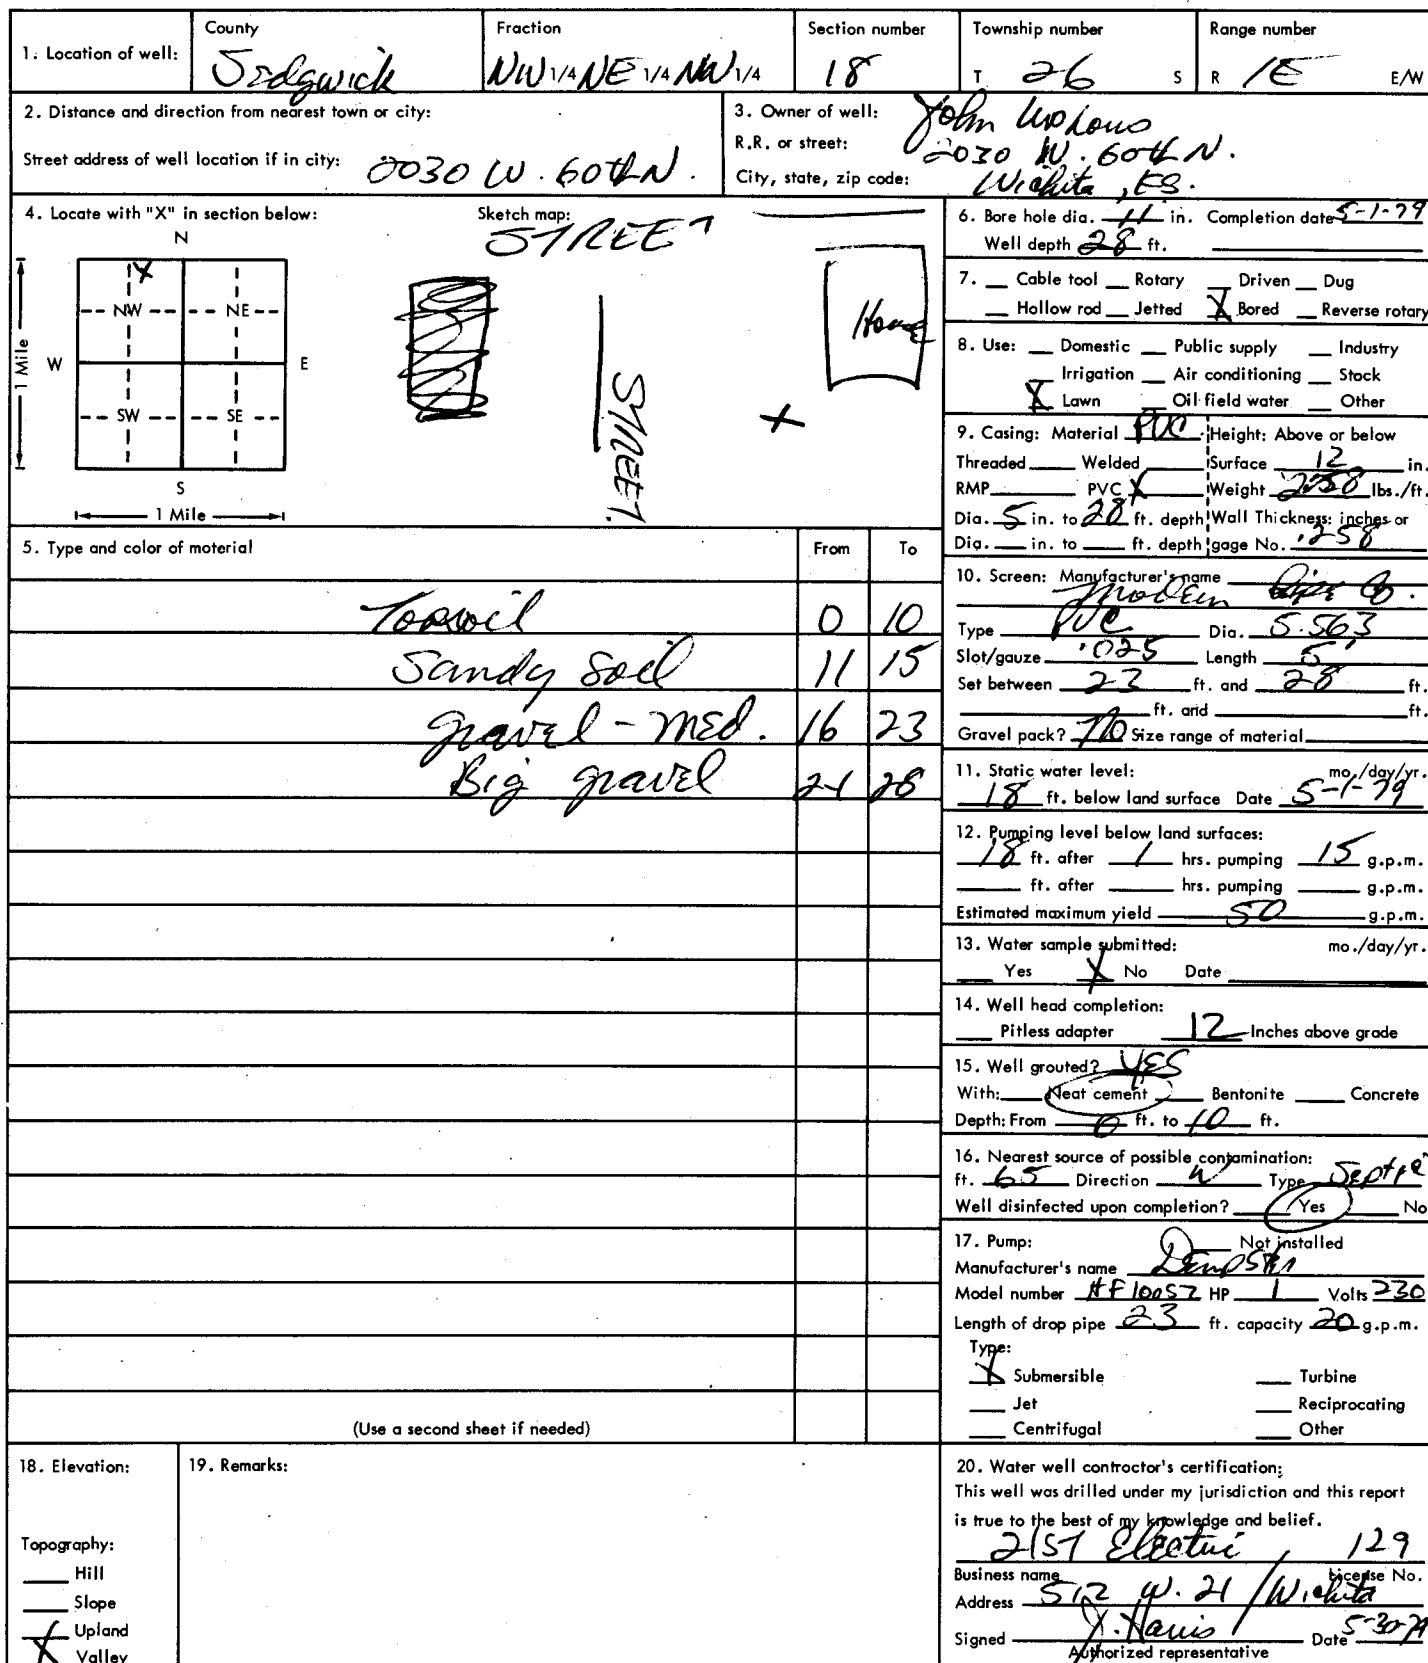 1. Location of well:
County
Sedgwick
Fraction
NW 1/4 NE 1/4 NW 1/4
Section number
18
Township number
T 26 S
Range number
R 1E E/W
2. Distance and direction from nearest town or city:
Street address of well location if in city: 2030 W. 60th N.
3. Owner of well: John
R.R. or street: 2030 W. 60th N.
City, state, zip code: Wichita, KS.
4. Locate with "X" in section below:
N
X
NW NE
W E
SW SE
S
1 Mile
1 Mile
Sketch map:
STREET
Home
STREET
X
6. Bore hole dia. 11 in. Completion date 5-1-79
Well depth 28 ft.
7. Cable tool Rotary Driven Dug
Hollow rod Jetted X Bored Reverse rotary
8. Use: Domestic Public supply Industry
Irrigation Air conditioning Stock
X Lawn Oil field water Other
9. Casing: Material PVC Height: Above or below
Threaded Welded Surface 12 in.
RMP PVC X Weight lbs./ft.
Dia. 5 in. to 28 ft. depth Wall Thickness: inches or
Dia. in. to ft. depth gage No. .258
5. Type and color of material From To
Topsoil 0 10
Sandy Soil 11 15
gravel - med. 16 23
Big gravel 24 28
(Use a second sheet if needed)
10. Screen: Manufacturer's name
Modern Pipe Co.
Type PVC Dia. 5.563
Slot/gauze .025 Length 5'
Set between 23 ft. and 28 ft.
ft. and ft.
Gravel pack? no Size range of material
11. Static water level: mo./day/yr.
18 ft. below land surface Date 5-1-79
12. Pumping level below land surfaces:
18 ft. after 1 hrs. pumping 15 g.p.m.
ft. after hrs. pumping g.p.m.
Estimated maximum yield 50 g.p.m.
13. Water sample submitted: mo./day/yr.
Yes X No Date
14. Well head completion:
Pitless adapter 12 Inches above grade
15. Well grouted? YES
With: Neat cement Bentonite Concrete
Depth: From 0 ft. to 10 ft.
16. Nearest source of possible contamination:
ft. 65 Direction W Type Septic
Well disinfected upon completion? Yes No
17. Pump: Not installed
Manufacturer's name Dempster
Model number HP 1 Volts 230
Length of drop pipe 23 ft. capacity 20 g.p.m.
Type:
X Submersible Turbine
Jet Reciprocating
Centrifugal Other
18. Elevation:
Topography:
Hill
Slope
Upland
X Valley
19. Remarks:
20. Water well contractor's certification:
This well was drilled under my jurisdiction and this report
is true to the best of my knowledge and belief.
21st Electric 129
Business name License No.
Address 512 W. 21 / Wichita
Signed J. Harris Date 5-30-79
Authorized representative